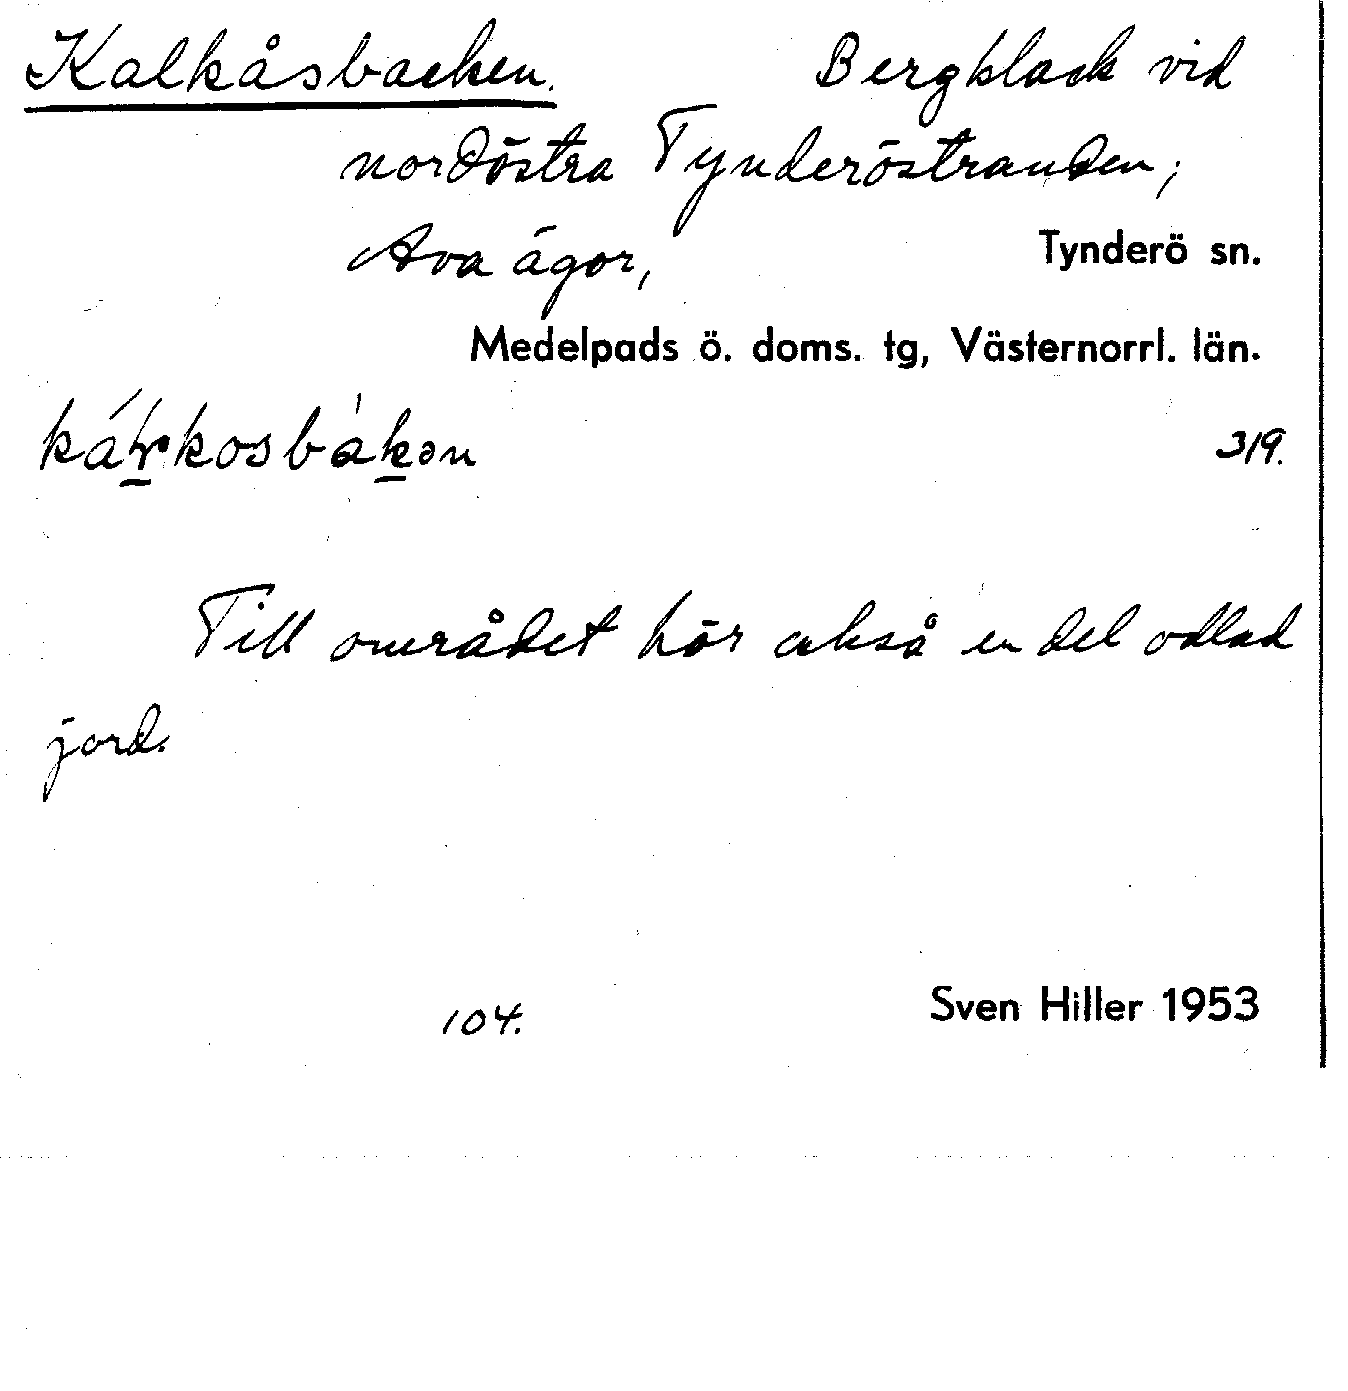 Kalkåsbacken. Bergklack vid
nordöstra Tynderöstranden;
Ava ägor, Tynderö sn.
Medelpads ö. doms. tg, Västernorrl. län.
319.
Till området hör också en del odlad
jord.
104. Sven Hiller 1953